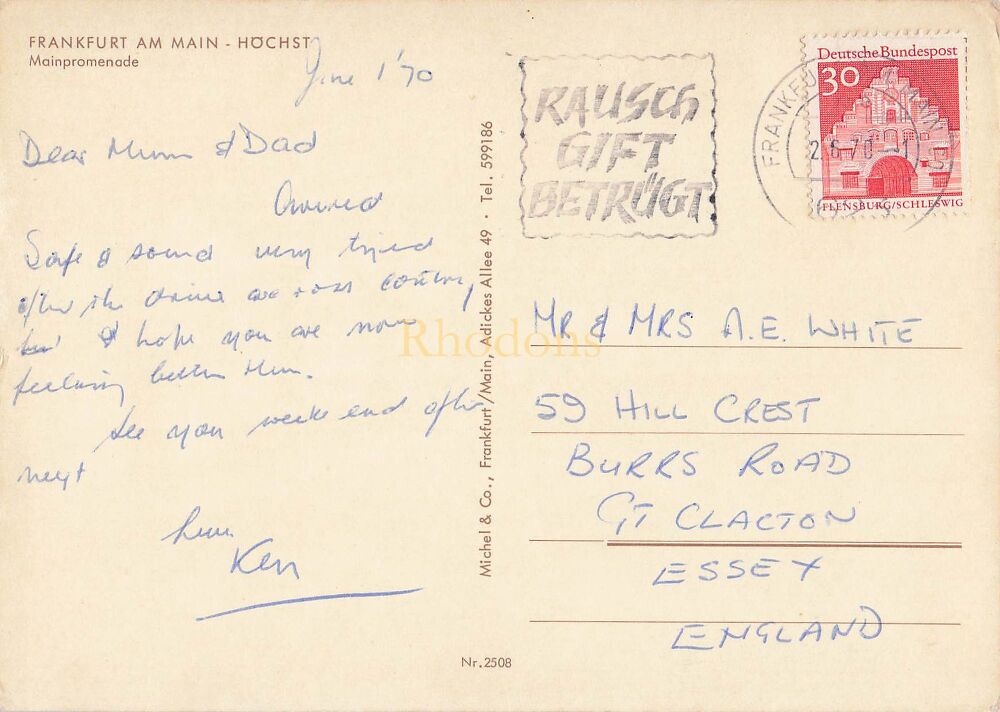 FRANKFURT AM MAIN - HÖCHST
Mainpromenade
June 1 '70
Dear Mum & Dad
Arrived
Safe & sound very tried
after the drive across country,
but I hope you are now
feeling better Mum.
See you week end after
next
Love
Ken
Michel & Co., Frankfurt/Main, Adickes Allee 49 · Tel. 599186
Nr. 2508
RAUSCH
GIFT
BETRÜGT
Deutsche Bundespost
30
FLENSBURG/SCHLESWIG
2.6.70
MR & MRS A.E. WHITE
59 HILL CREST
BURRS ROAD
GT CLACTON
ESSEX
ENGLAND
Rhodons